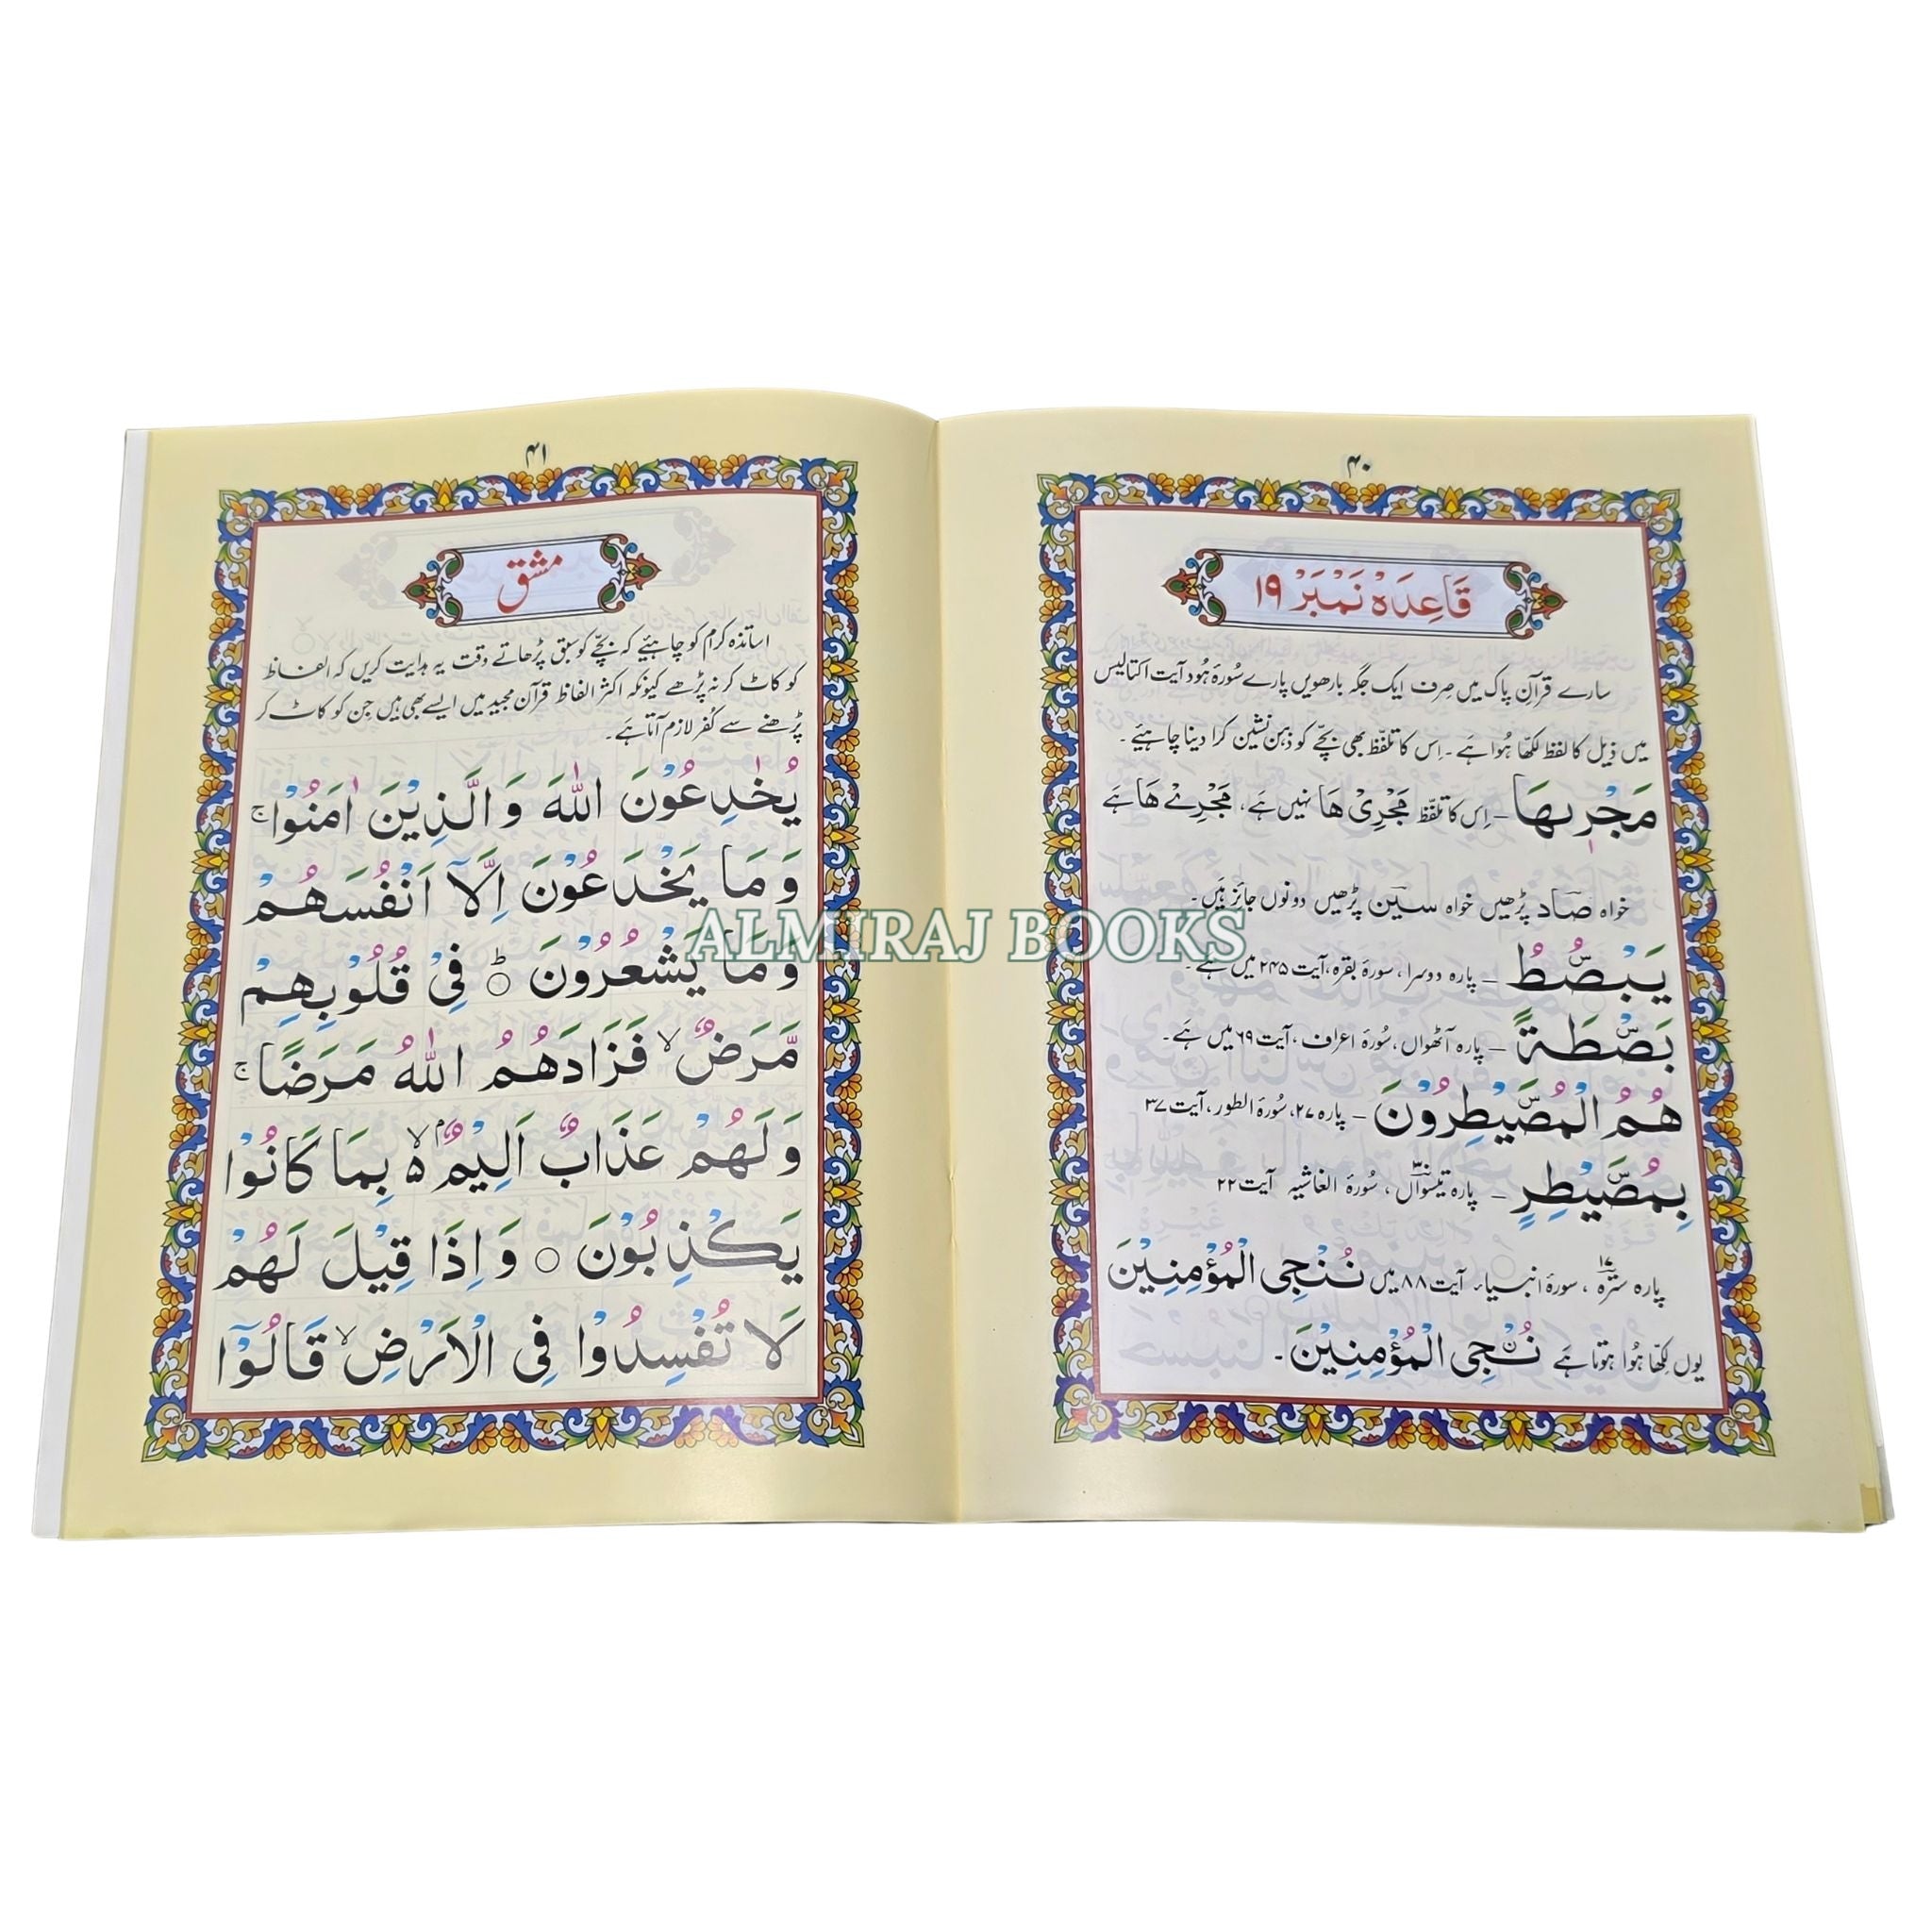 ۴۰
قَاعِدَہ نَمْبَرْ ۱۹
سارے قرآن پاک میں صِرف ایک جگہ بارھویں پارے سُورۂ ہُود آیت اکتالیس
میں ذیل کا لفظ لکھا ہُوا ہَے۔ اِس کا تلفّظ بھی بچّے کو ذہن نشین کرا دینا چاہیئے۔
مَجْرٖىهَا – اِس کا تلفّظ مَجْرِیْ هَا نہیں ہَے، مَجْرِےْ هَا ہَے
خواہ صٓاد پڑھیں خواہ سٓین پڑھیں دونوں جائز ہَیں۔
يَبْصُۜطُ – پارہ دوسرا، سورۂ بقرہ، آیت ۲۴۵ میں ہَے۔
بَصْۜطَةً – پارہ آٹھواں، سُورۂ اعراف، آیت ۶۹ میں ہَے۔
هُمُ الْمُصَۜيْطِرُوْنَ – پارہ ۲۷، سُورۂ الطور، آیت ۳۷
بِمُصَۜيْطِرٍ – پارہ تیسواں ۳۰، سُورۂ الغاشیہ آیت ۲۲
پارہ سترہ ۱۷، سورۂ انبیاء آیت ۸۸ میں نُنْجِى الْمُؤْمِنِيْنَ
یوں لکھّا ہُوا ہوتا ہَے نُـۨجِى الْمُؤْمِنِيْنَ۔
۴۱
مشق
اساتذہ کرام کو چاہیئے کہ بچّے کو سبق پڑھاتے وقت یہ ہدایت کریں کہ الفاظ
کو کاٹ کر نہ پڑھے کیونکہ اکثر الفاظ قرآن مجید میں ایسے بھی ہیں جِن کو کاٹ کر
پڑھنے سے کُفر لازم آتا ہَے۔
يُخٰدِعُوْنَ اللّٰهَ وَالَّذِيْنَ اٰمَنُوْا ۚ
وَمَا يَخْدَعُوْنَ اِلَّاۤ اَنْفُسَهُمْ
وَمَا يَشْعُرُوْنَ ؕ فِیْ قُلُوْبِهِمْ
مَّرَضٌ ۙ فَزَادَهُمُ اللّٰهُ مَرَضًا ۚ
وَلَهُمْ عَذَابٌ اَلِيْمٌۢ ۙ۬ بِمَا كَانُوْا
يَكْذِبُوْنَ ○ وَاِذَا قِيْلَ لَهُمْ
لَا تُفْسِدُوْا فِی الْاَرْضِ ۙ قَالُوْۤا
ALMIRAJ BOOKS